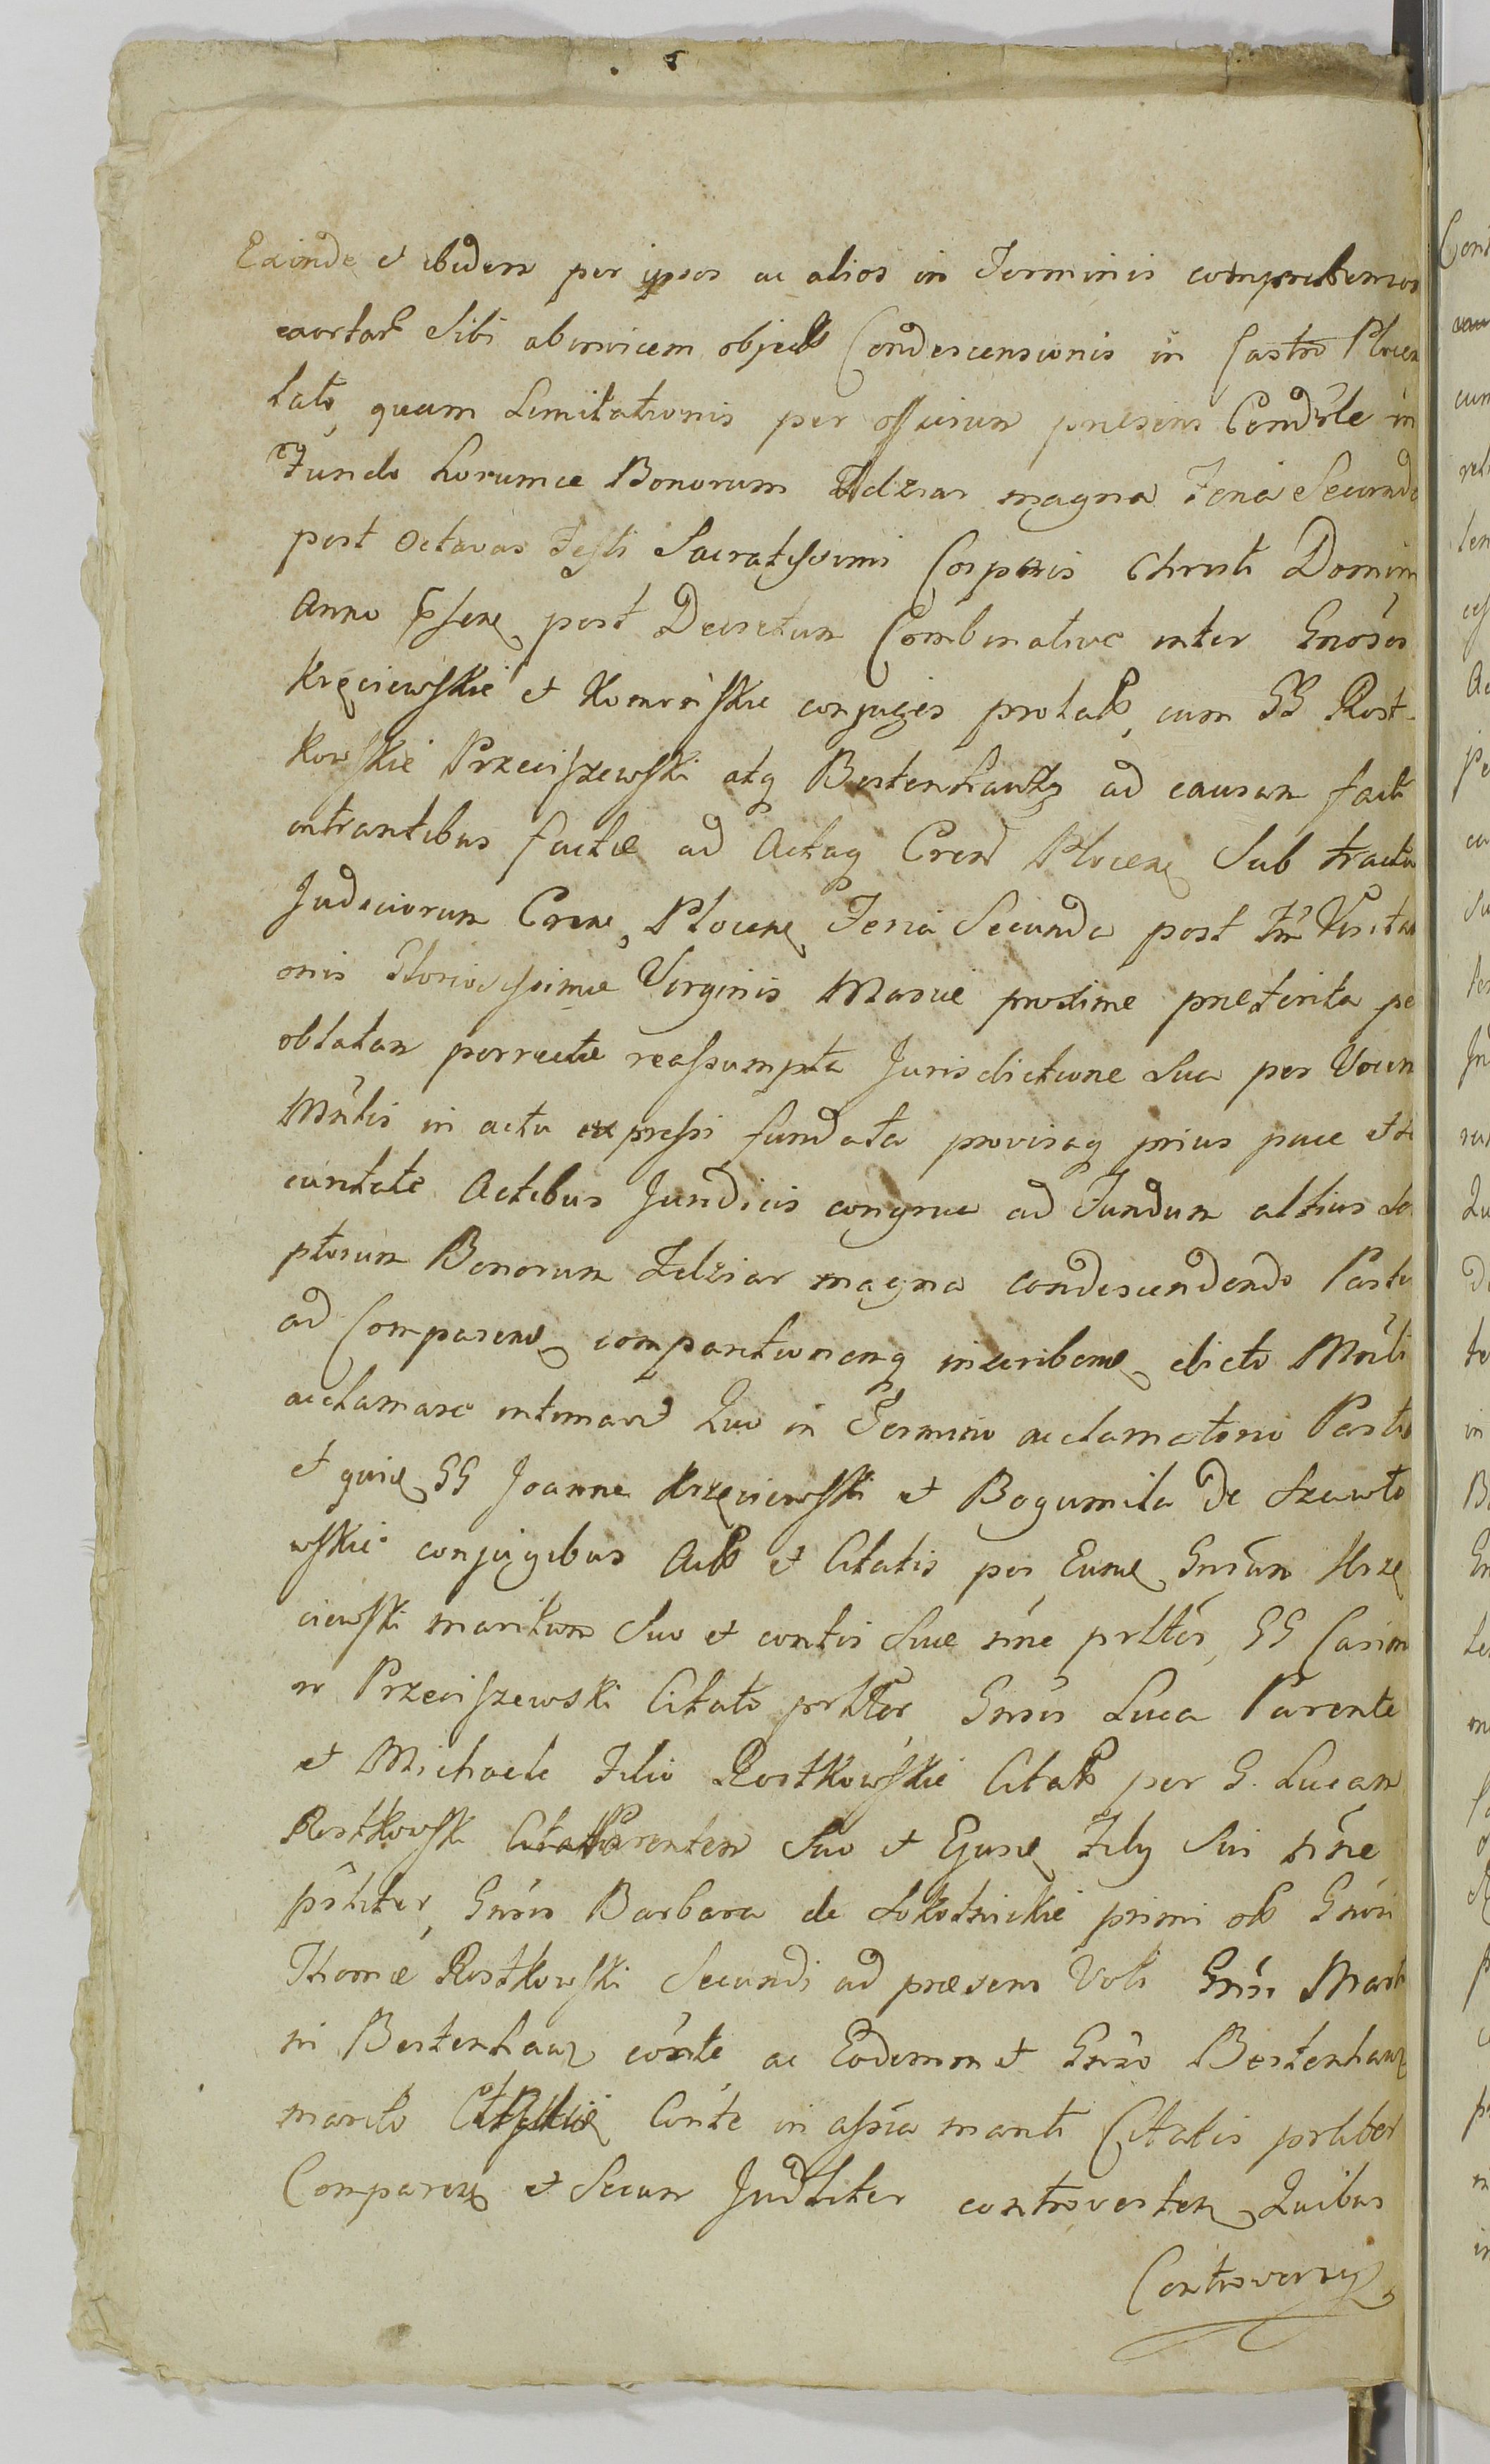 Exinde et ibidem per ipsos ac alios in Terminis comprehensos
exortar Sibi abinvicem object Condescensionis in Castro Plocen
lato, quam Limitationis per officium praesens Cond̃le in
Fundo horumce Bonorum Idziar magna Feria Secunda
post Octavas Festi Sacratissimi Corporis Christi Domini
Anno p̃sen post Decretum Combinative inter Gnosos
Kręciewskie et Komorskie conjuges prolat, cum GG Rost-
kowskie Przeciszewski atq Bestenhautz ad causam facti
intrantibus factae ad Actaq Cren Plocen Sub tractu
Judiciorum Cren, Plocen Feria Secunda post Fm̃ Visitati
onis Gloriosissimae Virginis Mariae proxime praeterita per
oblatam porrectae reassumpta Jurisdictione Sua per Vocem
Mñlis in actu expressi fundata provisaq prius pace et se
curitate Actibus Juridicis congrua ad Fundum altius Scri
ptorum Bonorum Idziar magna condescendendo Partes
ad Comparen comparitionemq inscriben edicto Mñli
acclamare intimavit Quo in Termino acclamatorio Partibus
et quid GG Joanne Krzęciewski et Bogumila De Szawlo
wskie conjugibus Act et Citatis per Eund Gnsum Krzę
ciewski maritum Suo et contis Suae nĩne prltẽr, GG Casim
ir Przeciszewski Citato prltẽr Gnsis Luca Parente
et Michaele Filio Rostkowskie Citat per G. Lucam
Rostkowski Parentem Suo et Ejusd Filij Sui nĩne
pr̃liter, Gnsis Barbara de Sokolnickie primi ol Gnsi
Thomae Rostkowski Secundi ad praesens Voti Gnsi Marti
ni Bestenhauz cõnte ac Eodemmet Gnso Bestenhauz
marito Conte in assĩa mariti Citatis prliter
Comparen et Secum Jud̃liter controverten Quibus
Controversijs